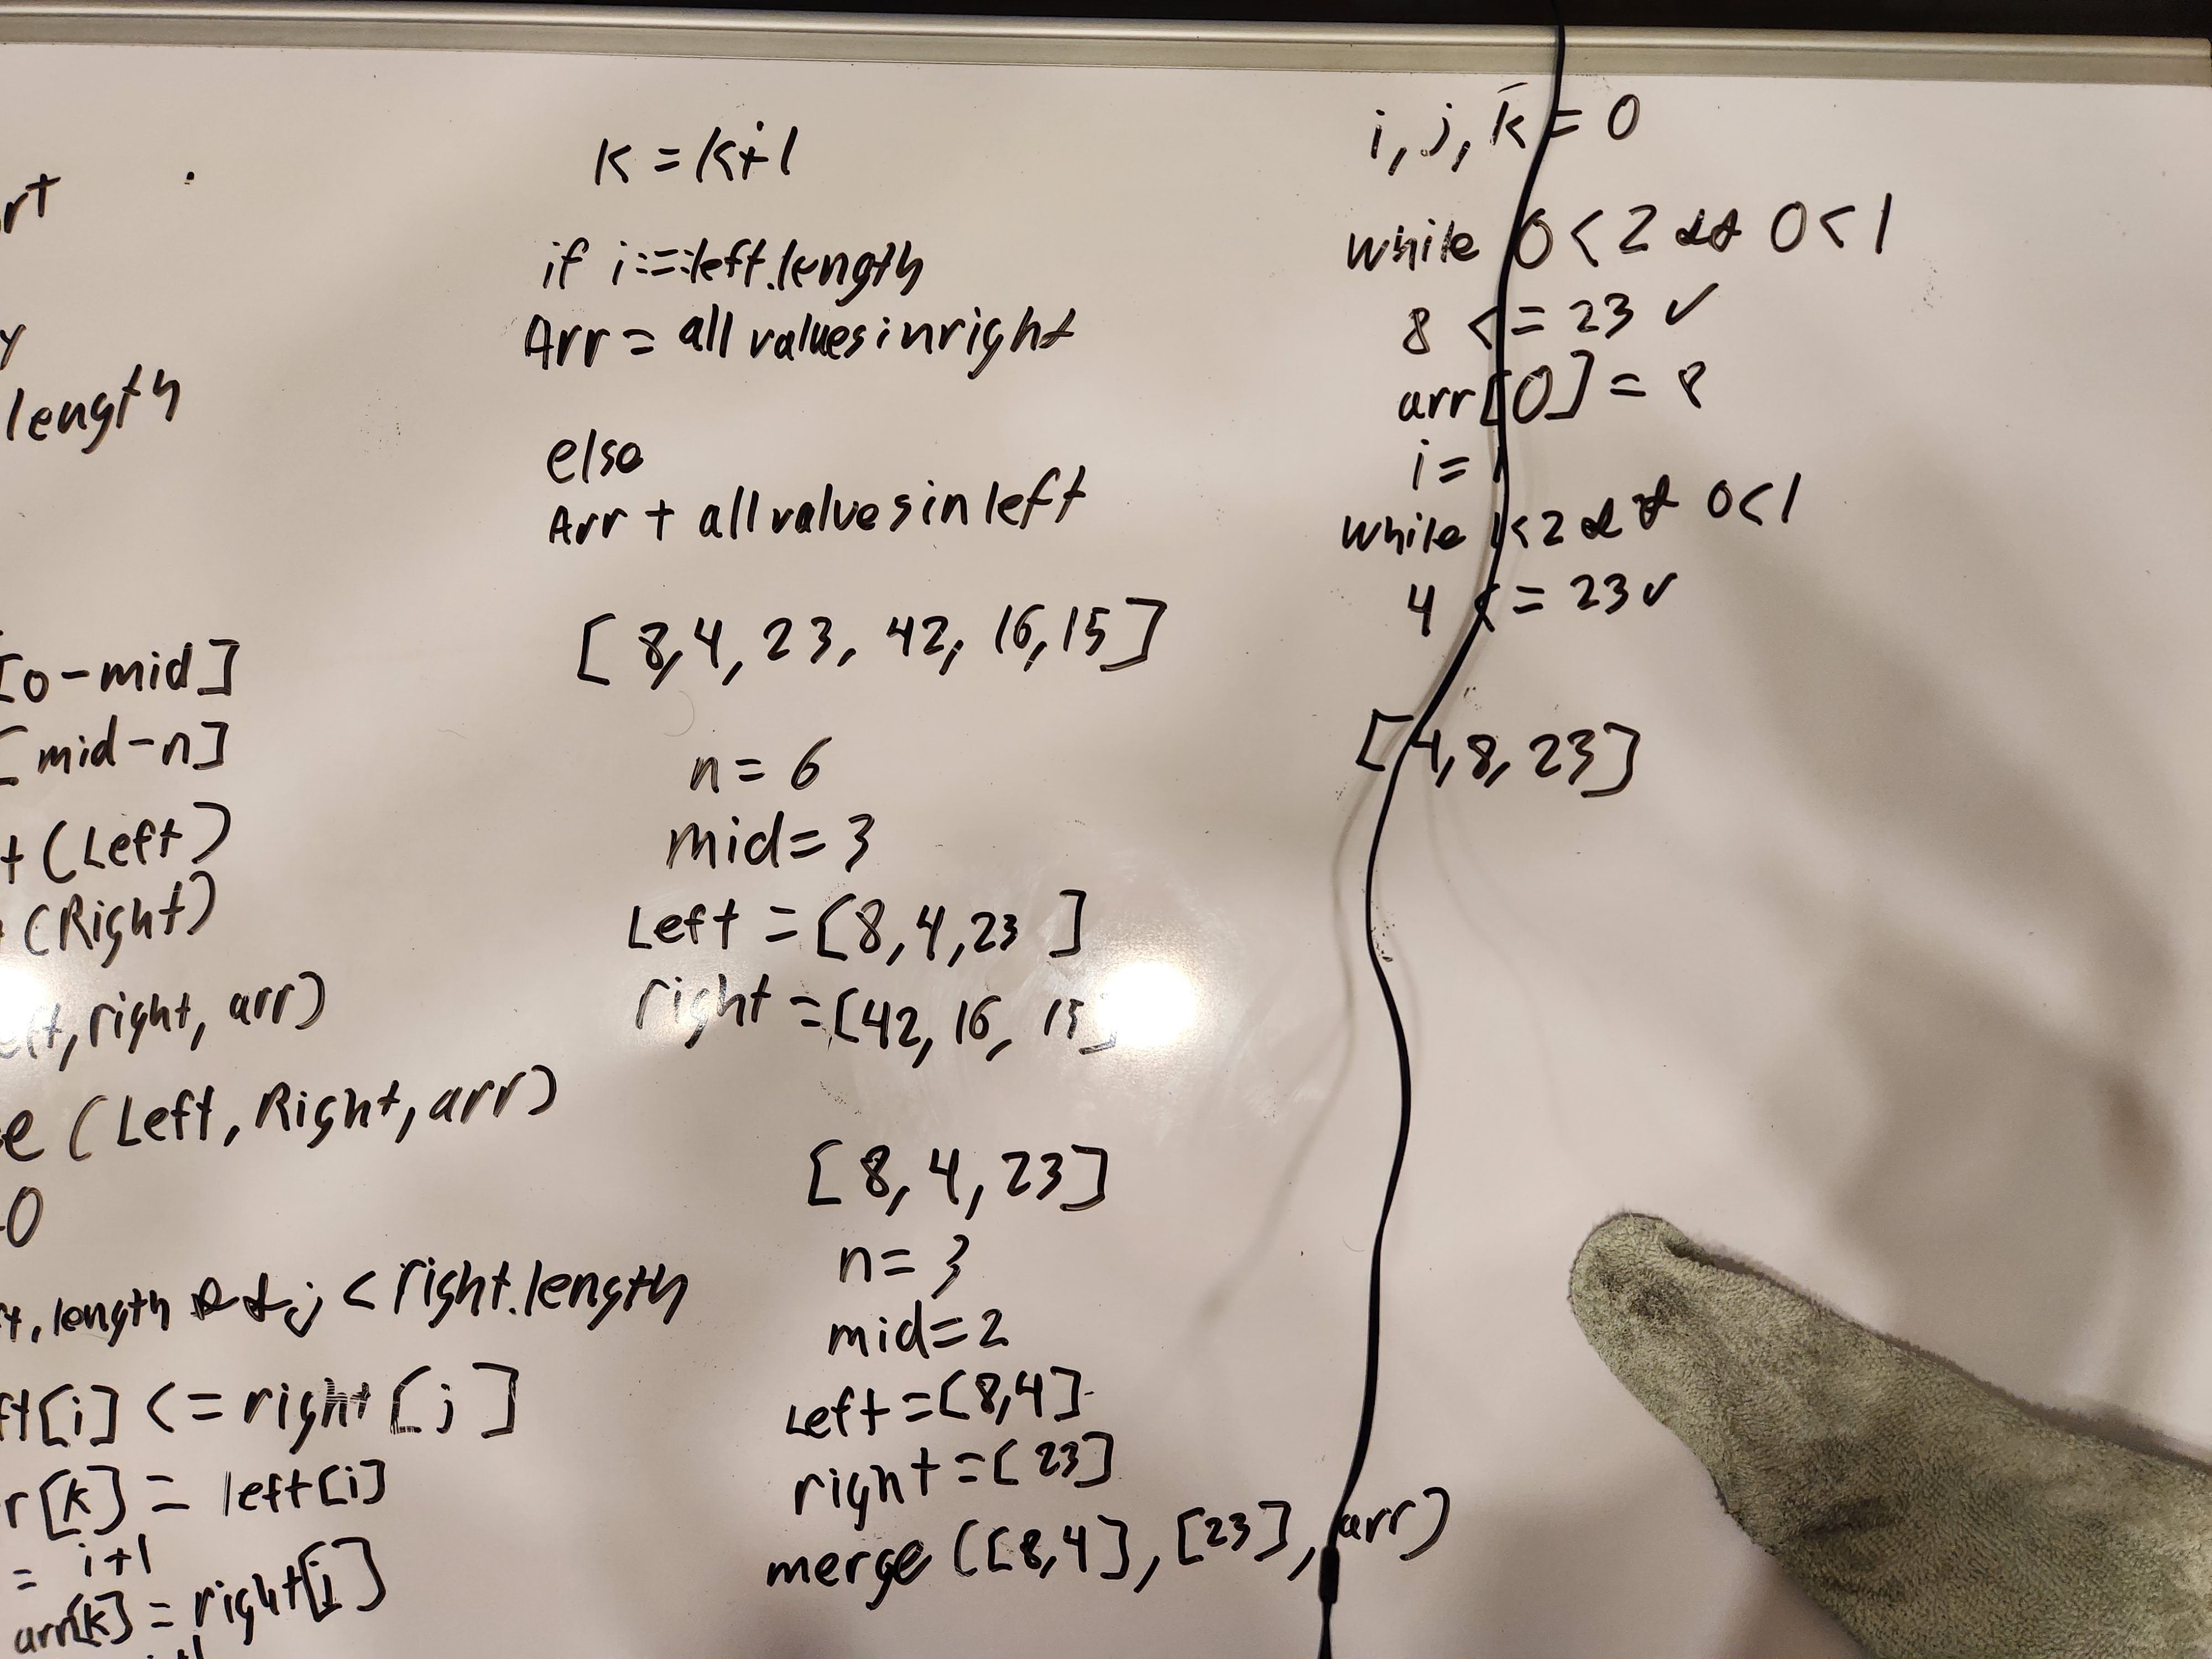 rt
y
length
[0-mid]
[mid-n]
t (Left)
(Right)
right, arr)
e (Left, Right, arr)
0
length && j < right.length
[i] <= right[j]
r[k] = left[i]
= i+1
arr[k] = right[j]
K = K+1
if i == left.length
Arr = all values in right
else
Arr + all values in left
[8,4, 23, 42, 16,15]
n = 6
mid = 3
Left = [8,4,23 ]
right = [42, 16, 15]
[8, 4, 23]
n = 3
mid = 2
Left = [8,4]
right = [23]
merge ([8,4], [23], arr)
i, j, k = 0
while 0 < 2 && 0 < 1
8 <= 23 ✓
arr[0] = 8
i = 1
while 1 < 2 && 0 < 1
4 <= 23 ✓
[4,8,23]